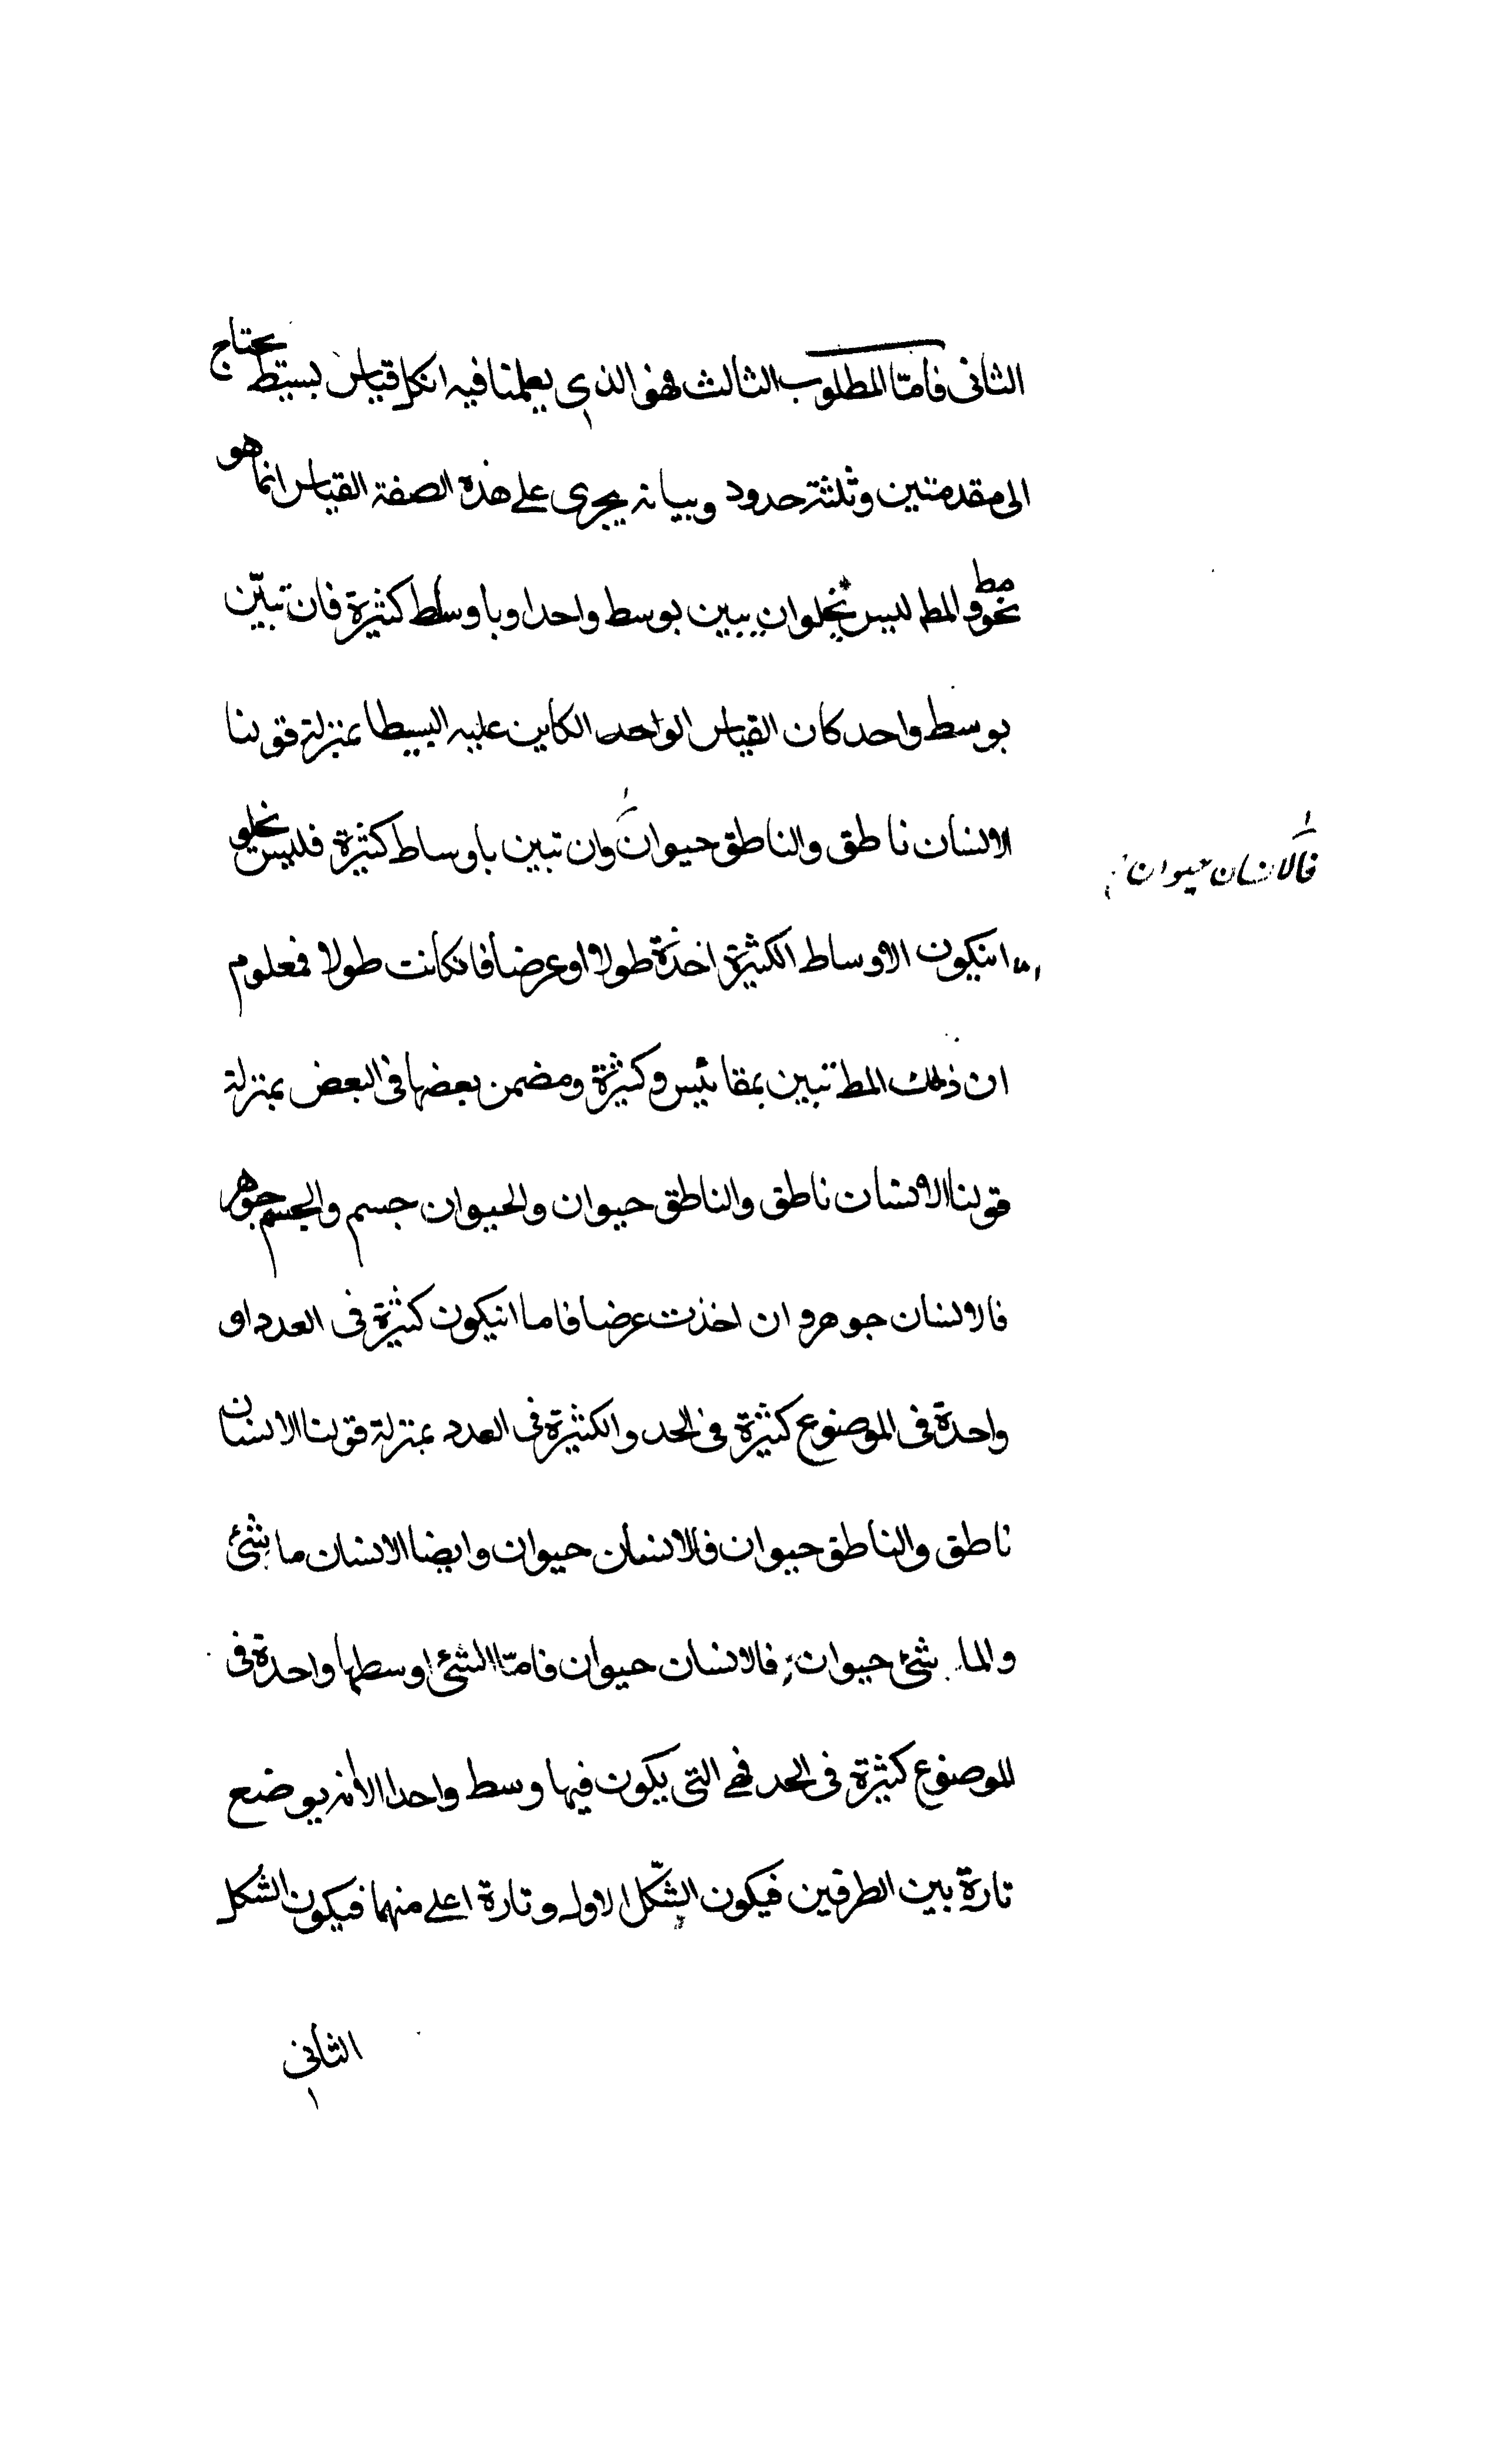 الثانى فأمّا المطلوب الثالث فهو الذى يعلمنا فيه انكل قياس بسيط يحتاج
الى مقدمتين وثلثة حدود وبيانه يجرى على هذه الصفة القياس انما هو
نحو مط والمط ليس يخلو ان يبين بوسط واحد او باوساط كثيرة فان تبيّن
بوسط واحد كان القياس الواحد الكاين عليه البسيطا بمنزلة قولنا
الانسان ناطق والناطق حيوان وان تبين باوساط كثيرة فليس يخلو
فالانسان حيوان
انيكون الاوساط الكثيرة اخذة طولا او عرضا فانكانت طولا فمعلوم
ان ذلك المط تبين بمقائيس وكثيرة ومضمن بعضها فى البعض بمنزلة
قولنا الانسان ناطق والناطق حيوان والحيوان جسم والجسم جوهر
فالانسان جوهر وان اخذت عرضا فاما انيكون كثيرة فى العدد او
واحدة فى الموضوع كثيرة فى الحد والكثيرة فى العدد بمنزلة قولنا الانسان
ناطق والناطق حيوان فالانسان حيوان وايضا الانسان ماشئ
والما شئ حيوان فالانسان حيوان فامّا الشئ اوسطها واحدة فى
للموضوع كثيرة فى الحد فهى التى يكون فيها وسط واحد الا انه يوضع
تارة بين الطرفين فيكون الشكل الاول وتارة اعلى منهما فيكون الشكل
الثانى